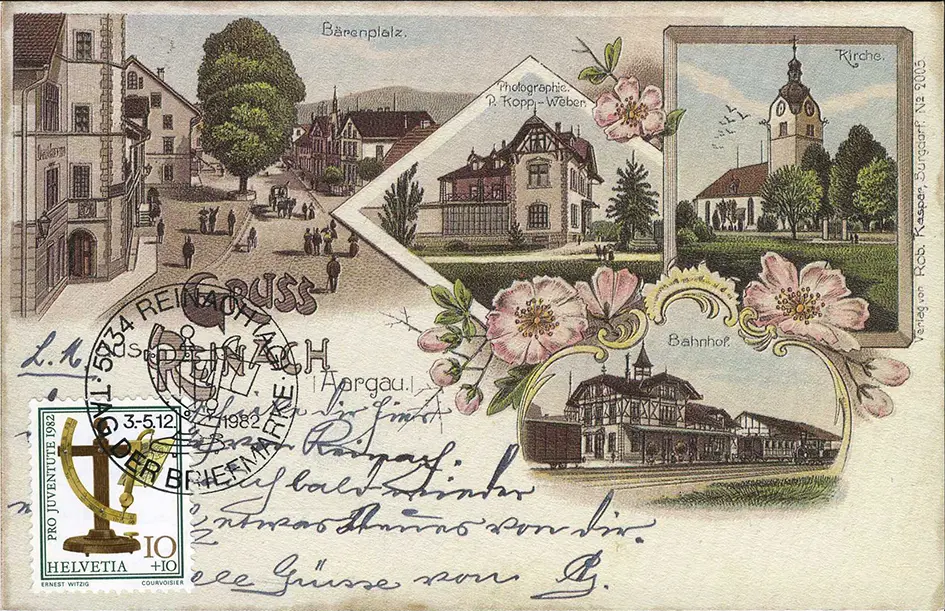 Bärenplatz.
Photographie.
R. Kopp-Weber.
Kirche.
Verlag von Rob. Kasper, Burgdorf. No 2005
GRUSS
aus REINACH
(Aargau.)
Bahnhof.
5734 REINACH AG · TAG DER BRIEFMARKE ·
3.-5.12 1982
PRO JUVENTUTE 1982
10
+10
HELVETIA
ERNEST WITZIG COURVOISIER
L. M
dir hier
von Reinach.
bald wieder
etwas Neues von dir.
Grüsse von